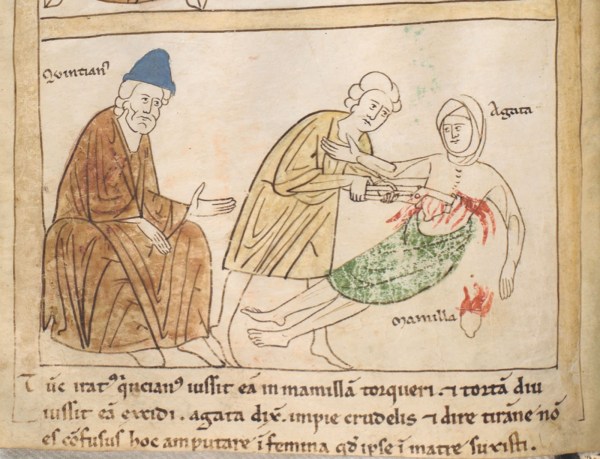 Quintianꝰ
Agata
Mamilla
Tūc iratꝰ q̇ncianꝰ iussit eā in mamillā torqueri. ⁊ tortā diu
iussit eā excidi. agata dix̄. impie crudelis ⁊ dire tirāne nō
es cōfusus hoc amputare ī femina qd̄ ipse ī matre suxisti.